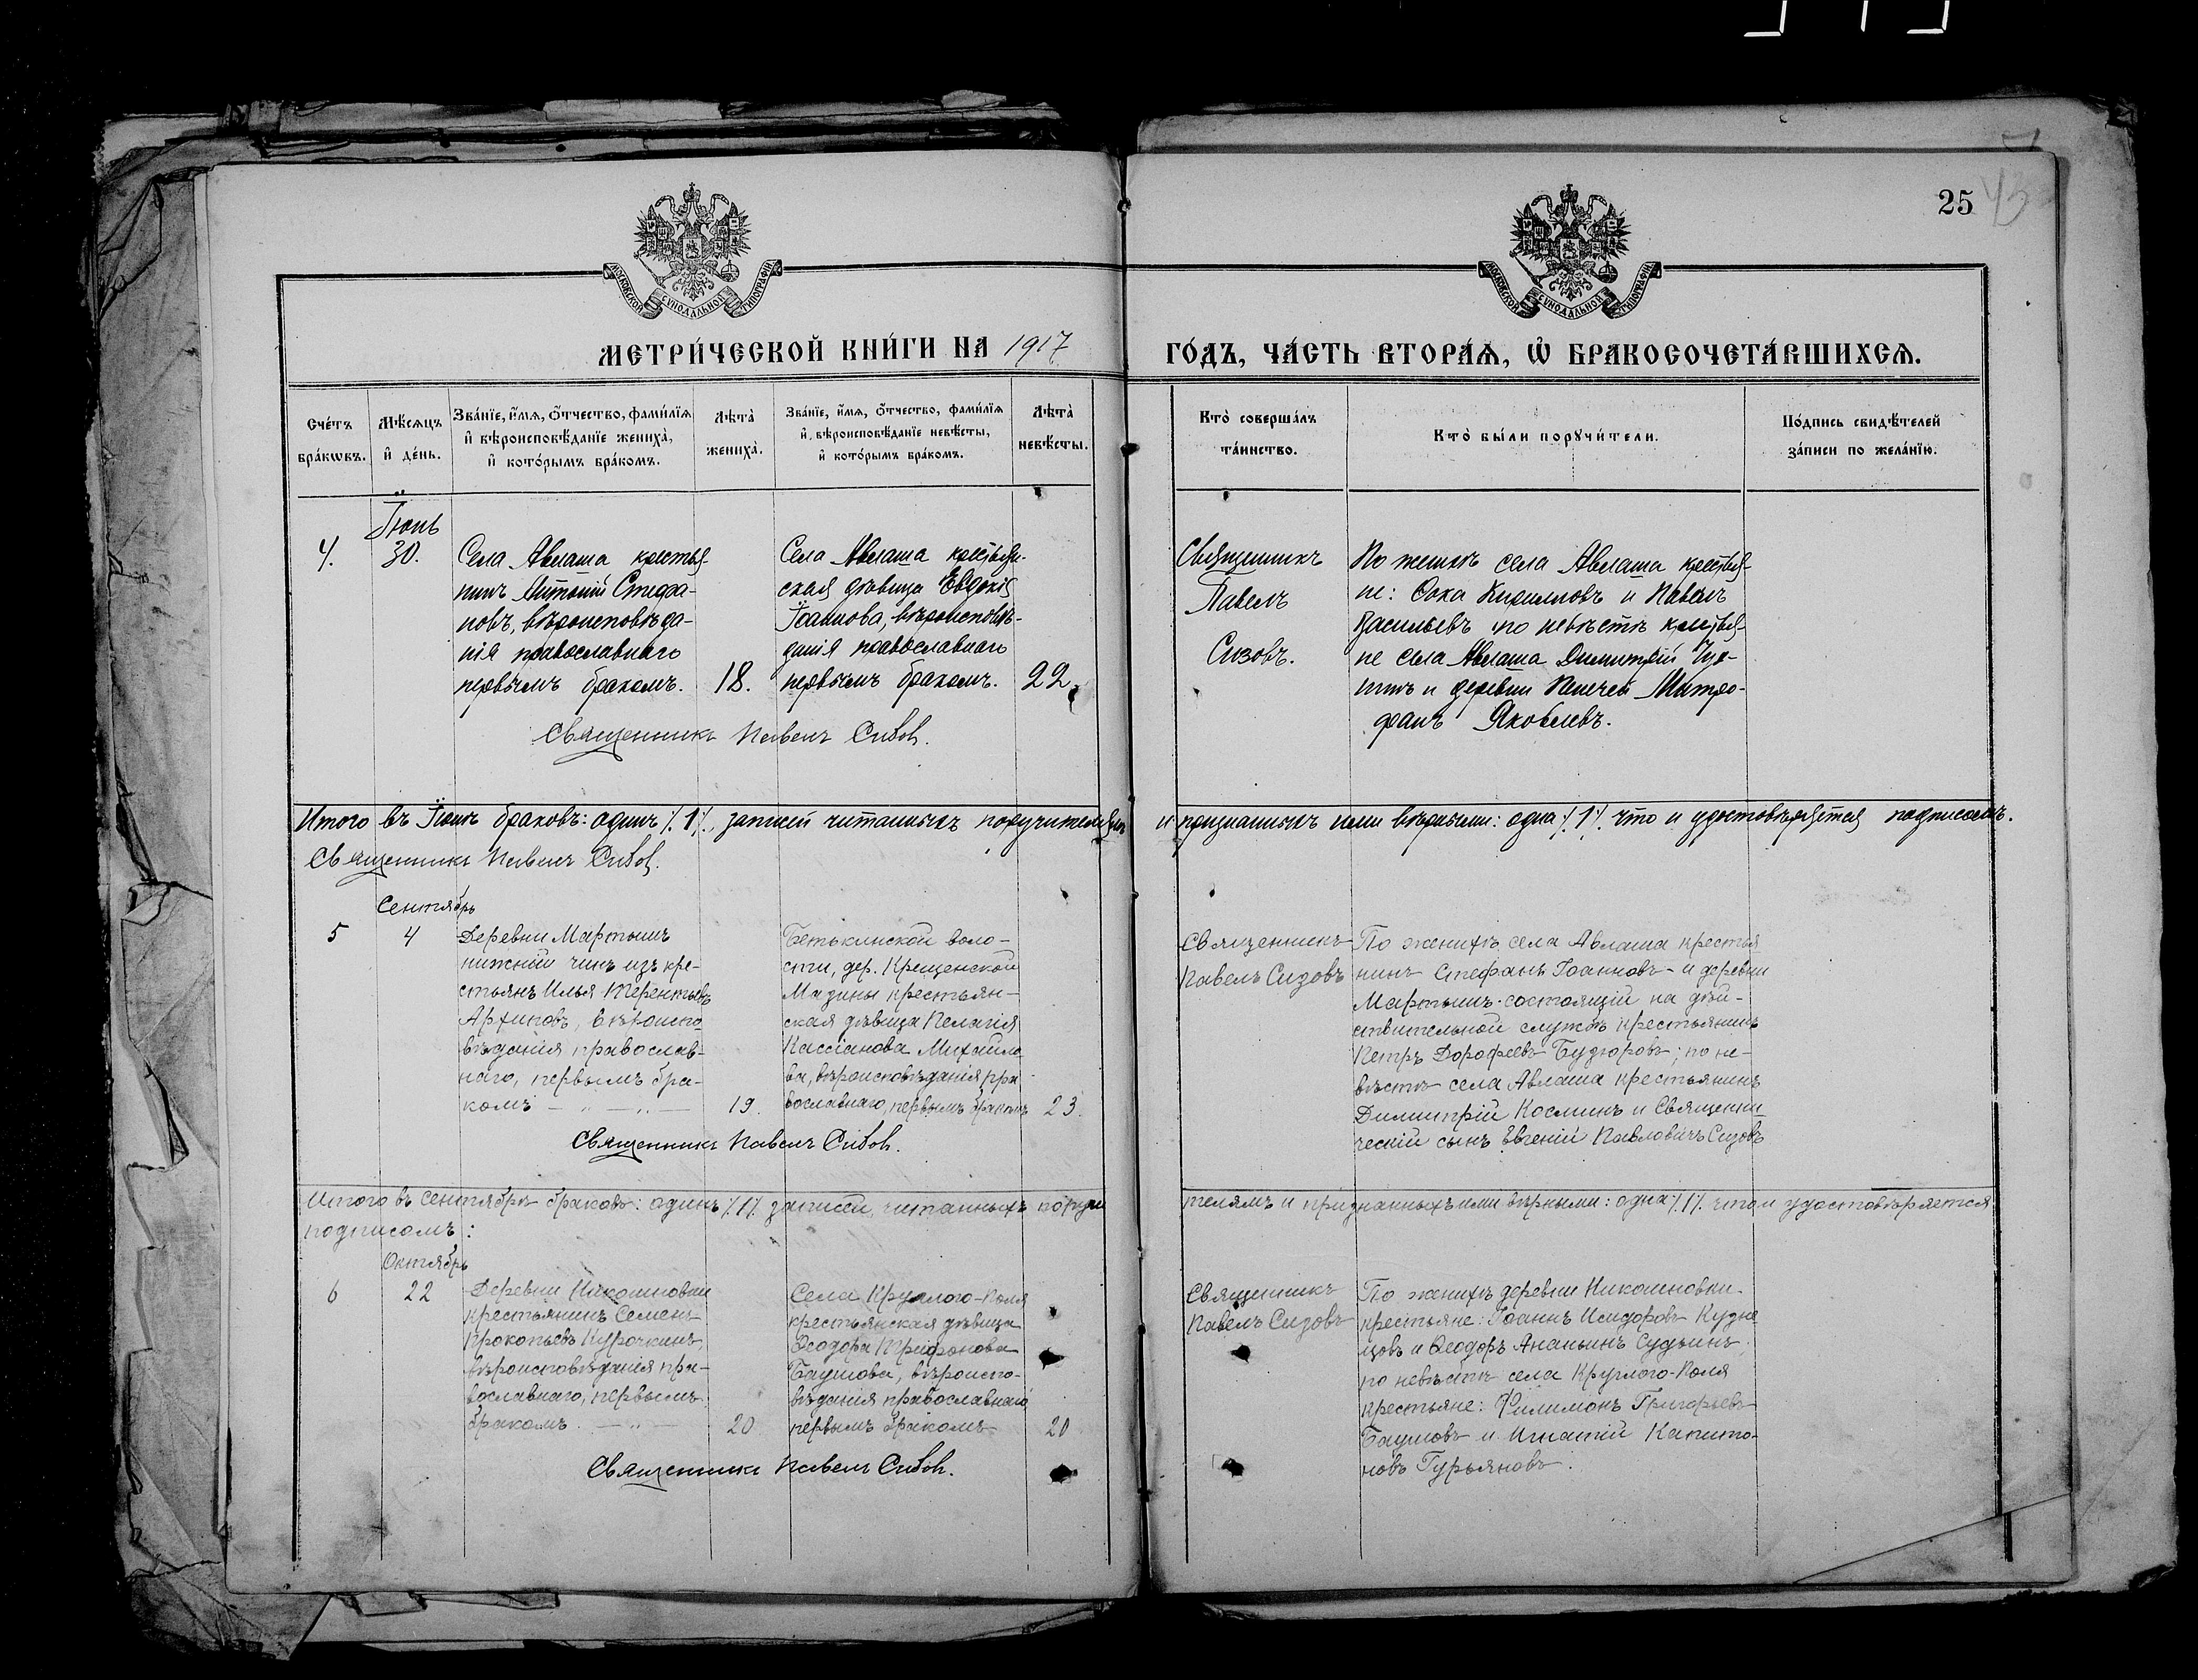 25 43
МОСКОВСКОЙ СѴНОДАЛЬНОЙ ТИПОГРАФІИ
МОСКОВСКОЙ СѴНОДАЛЬНОЙ ТИПОГРАФІИ
МЕТРИ́ЧЕСКОЙ КНИ́ГИ НА 1917 ГО́ДЪ, ЧА́СТЬ ВТОРА́Ѧ, Ѽ БРАКОСОЧЕТА́ВШИХСѦ.
Сче́тъ бра́кѡвъ.
Мѣ́сѧцъ и҆ де́нь.
Зва́нїе, и҆́мѧ, ѻ҆́тчество, фами́лїѧ
и҆ вѣроисповѣ́данїе жениха̀,
и҆ кото́рымъ бра́комъ.
Лѣта̀ жениха̀.
Зва́нїе, и҆́мѧ, ѻ҆́тчество, фами́лїѧ
и҆ вѣроисповѣ́данїе невѣ́сты,
и҆ кото́рымъ бра́комъ.
Лѣта̀ невѣ́сты.
Кто̀ соверша́лъ
та́инство.
Кто̀ бы́ли порꙋчи́тели.
По́дпись свидѣ́телей
за́писи по жела́нїю.
Іюнь
4. 30.
Села Авлаша крестья-
нинъ Антоній Стефа-
новъ, вѣроисповѣда-
нія православнаго
первымъ бракомъ.
18.
Села Авлаша крестьян-
ская дѣвица Евдокія
Іоаннова, вѣроисповѣ-
данія православнаго
первымъ бракомъ.
22.
Священникъ
Павелъ
Сизовъ.
По женихѣ села Авлаша крестья-
не: Фока Кирилловъ и Павелъ
Васильевъ по невѣстѣ крестья-
не села Авлаша Димитрій
и деревни Митро-
фанъ Яковлевъ.
Священникъ Павелъ Сизов.
Итого въ Іюнѣ браковъ: одинъ /.1/. записей читанныхъ поручителямъ и признанныхъ ими вѣрными: одна /.1/. что и удостовѣряется подписомъ.
Священникъ Павелъ Сизов.
Сентябрь
5 4
Деревни Мартышъ
нижній чинъ изъ кре-
стьянъ Илья Терентьевъ
Архиповъ, вѣроиспо-
вѣданія православ-
наго, первымъ бра-
комъ — „ — „ —
19.
Бетькинской воло-
сти, дер. Крещенской
Мазины крестьян-
ская дѣвица Пелагія
Кассіанова Михайло-
ва, вѣроисповѣданія пра
вославнаго, первымъ бракомъ
23.
Священникъ
Павелъ Сизовъ
По женихѣ села Авлаша крестья
нинъ Стефанъ Іоанновъ и деревни
Мартышъ состоящій на дѣй-
ствительной службѣ крестьянинъ
Петръ Дорофеевъ Будюровъ; по не-
вѣстѣ села Авлаша крестьянинъ
Димитрій Косминъ и Священни-
ческій сынъ Евгеній Павловичъ Сизовъ
Священникъ Павелъ Сизов.
Итого въ сентябрѣ браковъ: одинъ /.1/. записей, читанныхъ поручи телямъ и признанныхъ ими вѣрными: одна /.1/. что и удостовѣряется
подписомъ:
Октябрь
6 22
Деревни Николиновки
крестьянинъ Семенъ
Прокопьевъ Курочкинъ,
вѣроисповѣданія пра-
вославнаго, первымъ
бракомъ. — „ —
20
Села Круглого-Поля
крестьянская дѣвица
Ѳеодора Трифонова
Баушова, вѣроиспо-
вѣданія православнаго
первымъ бракомъ
20
Священникъ
Павелъ Сизовъ
По женихѣ деревни Николиновки
крестьяне: Іоаннъ Исидоровъ Кузне
цовъ и Ѳеодоръ Ананьинъ Судьинъ
по невѣстѣ села Круглого-Поля
крестьяне: Филимонъ Григорьевъ
Баушовъ и Игнатій Капито-
новъ Гурьяновъ.
Священникъ Павелъ Сизов.